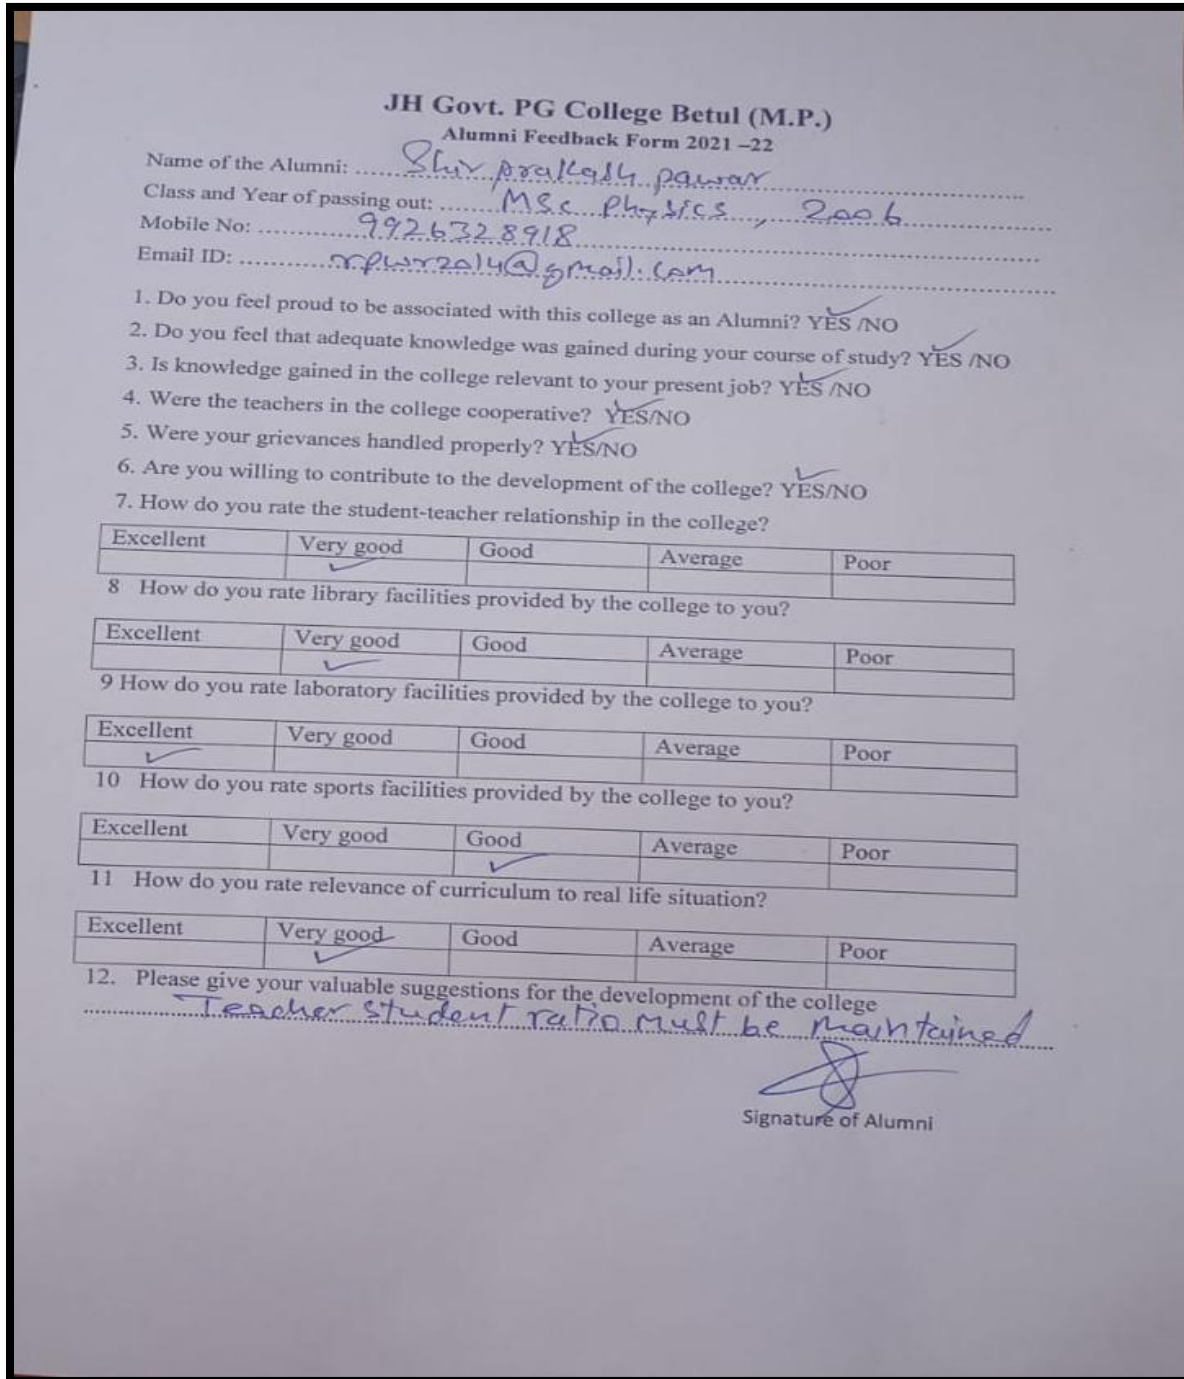 JH Govt. PG College Betul (M.P.)
Alumni Feedback Form 2021 –22
Name of the Alumni: ...... Shiv prakash pawar
Class and Year of passing out: ....... MSc Physics, 2006
Mobile No: .............. 9926328918
Email ID: ............. rpwr2014@gmail.com
1. Do you feel proud to be associated with this college as an Alumni? YES /NO
2. Do you feel that adequate knowledge was gained during your course of study? YES /NO
3. Is knowledge gained in the college relevant to your present job? YES /NO
4. Were the teachers in the college cooperative? YES/NO
5. Were your grievances handled properly? YES/NO
6. Are you willing to contribute to the development of the college? YES/NO
7. How do you rate the student-teacher relationship in the college?
Excellent Very good Good Average Poor
8 How do you rate library facilities provided by the college to you?
Excellent Very good Good Average Poor
9 How do you rate laboratory facilities provided by the college to you?
Excellent Very good Good Average Poor
10 How do you rate sports facilities provided by the college to you?
Excellent Very good Good Average Poor
11 How do you rate relevance of curriculum to real life situation?
Excellent Very good Good Average Poor
12. Please give your valuable suggestions for the development of the college
Teacher student ratio must be maintained
Signature of Alumni